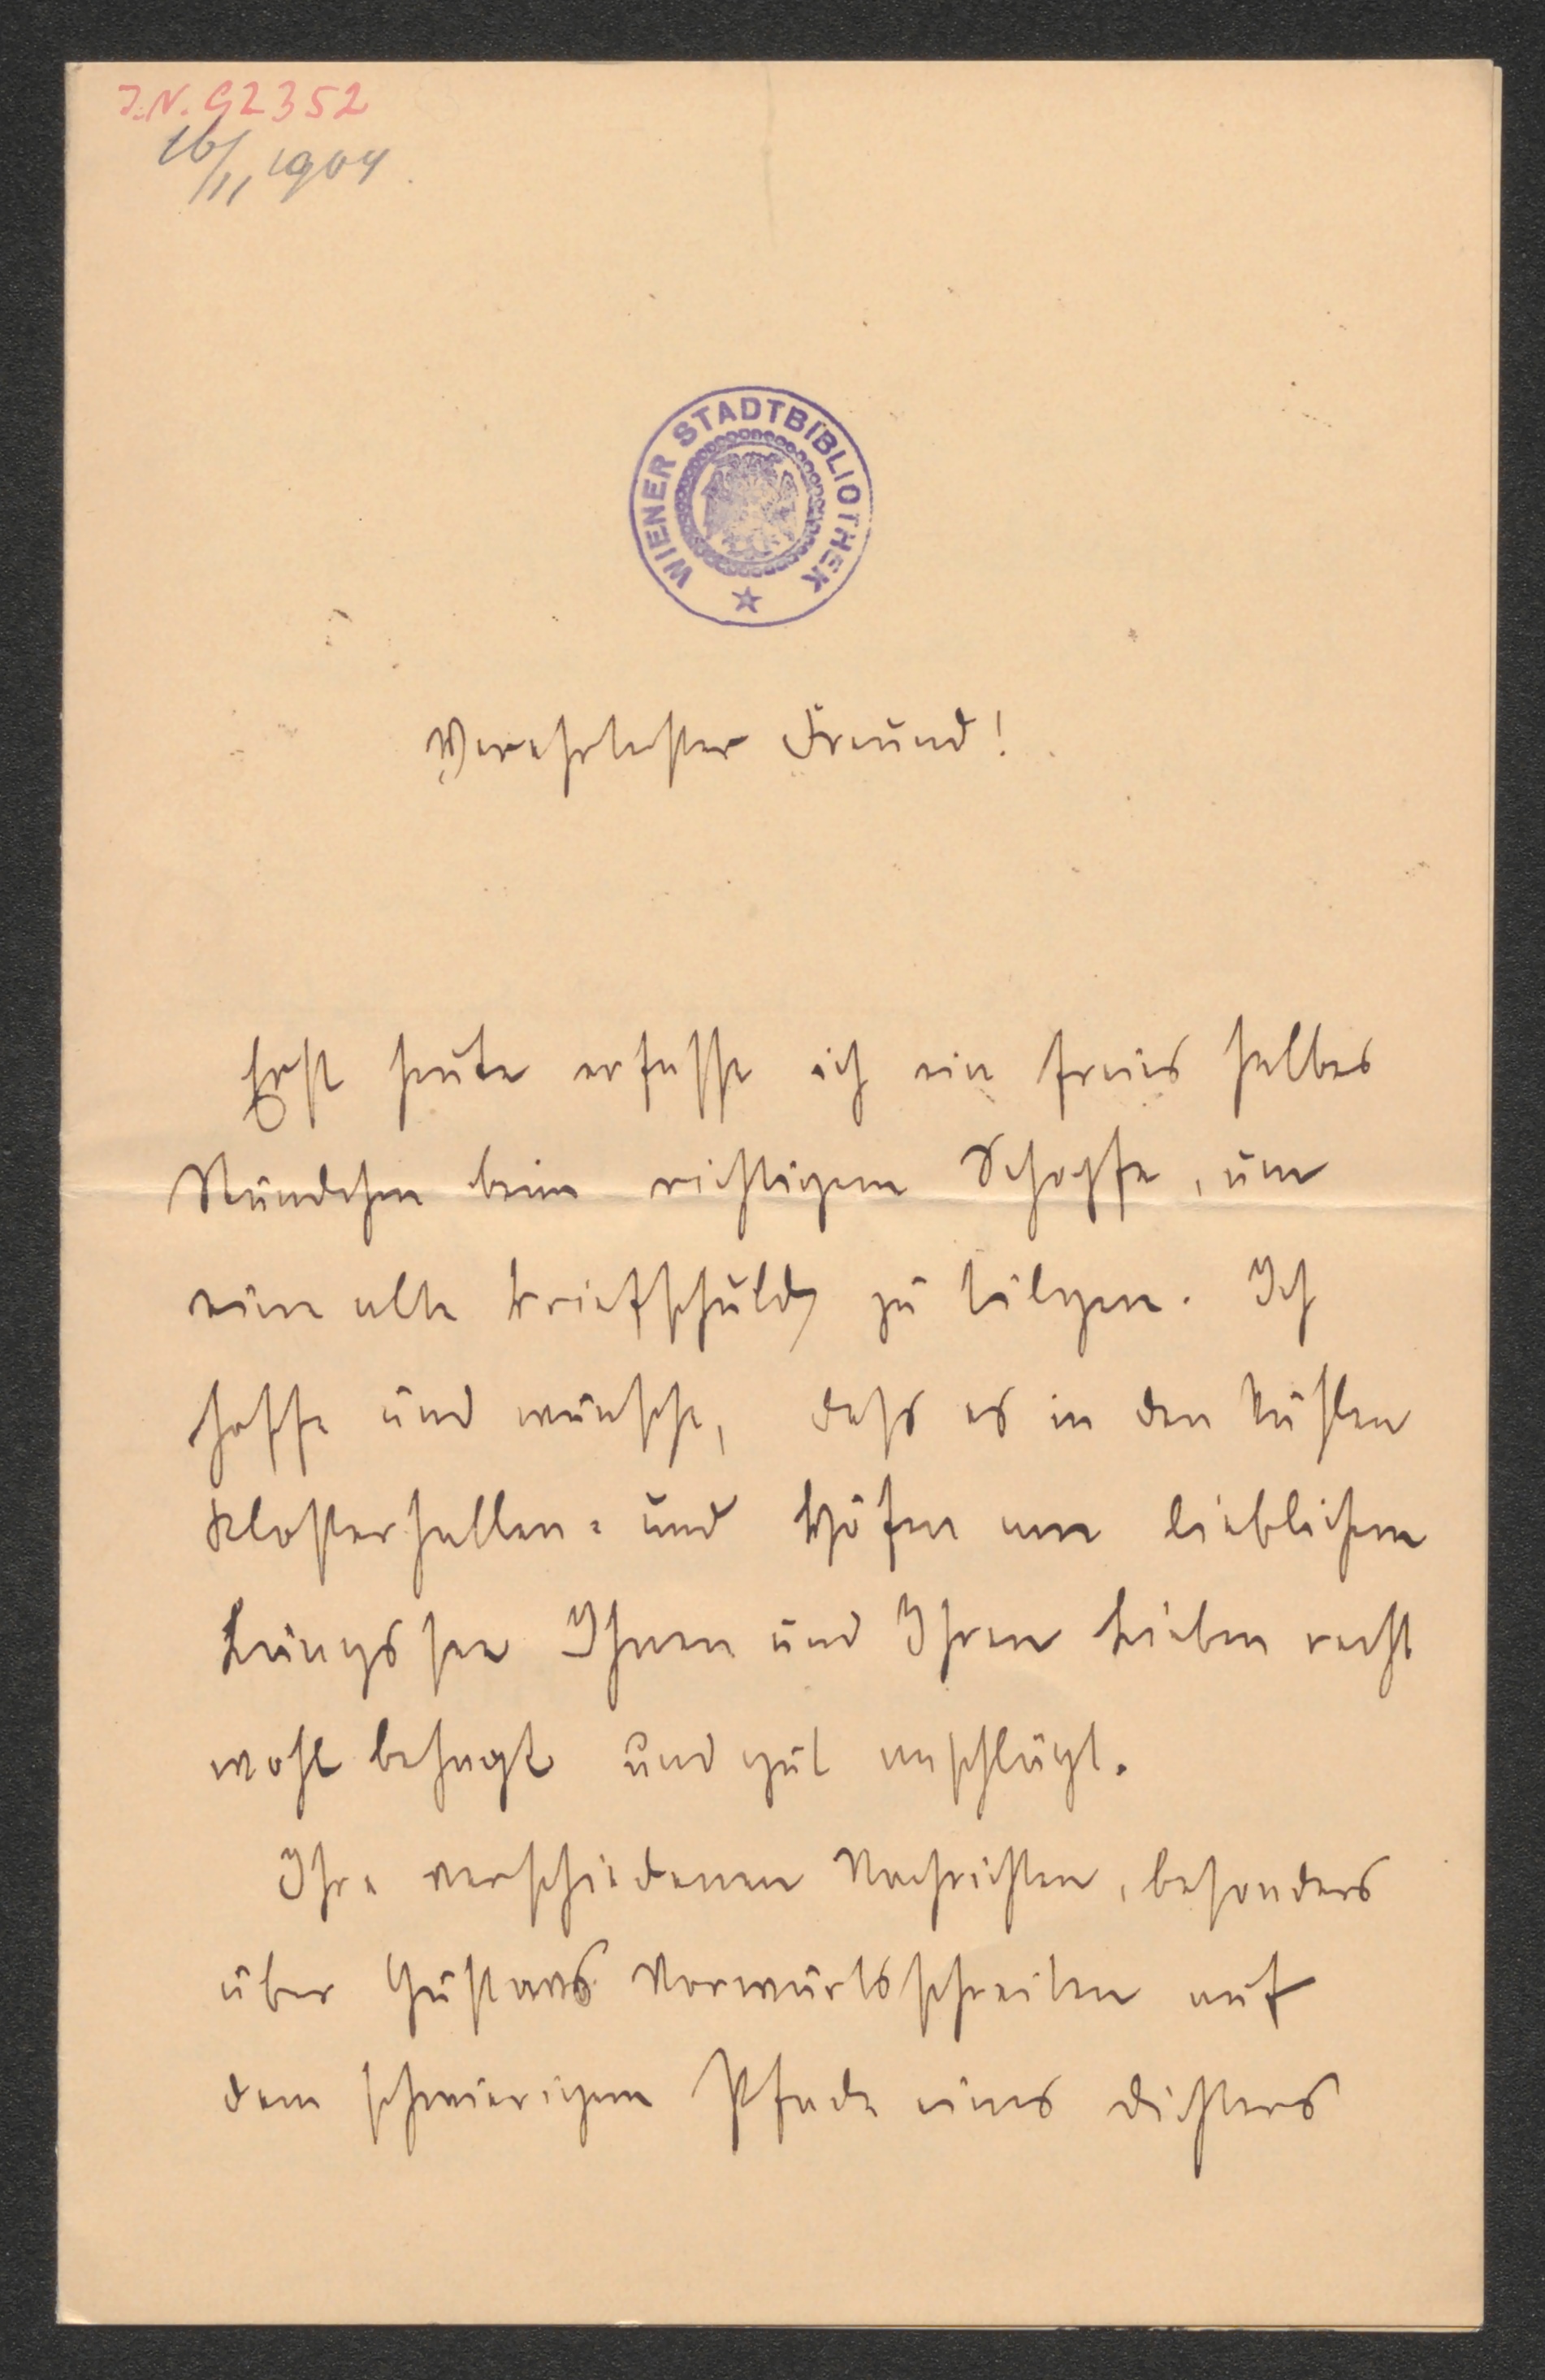 I.N. 92352
16/11 1904.
WIENER STADTBIBLIOTHEK
Verehrtester Freund!
Erst heute erfasse ich ein freies halbes
Stündchen beim richtigen Schopfe, um
eine alte Briefschuld zu tilgen. Ich
hoffe und wünsche, dass es in den kühlen
Klosterhallen- und Höfen am lieblichen
Längssee Ihnen und Ihren Lieben recht
wohl behagt und gut anschlägt.
Ihre verschiedenen Nachrichten, besonders
über Gustavs Vorwärtsschreiten auf
dem schwierigen Pfade eines Dichters